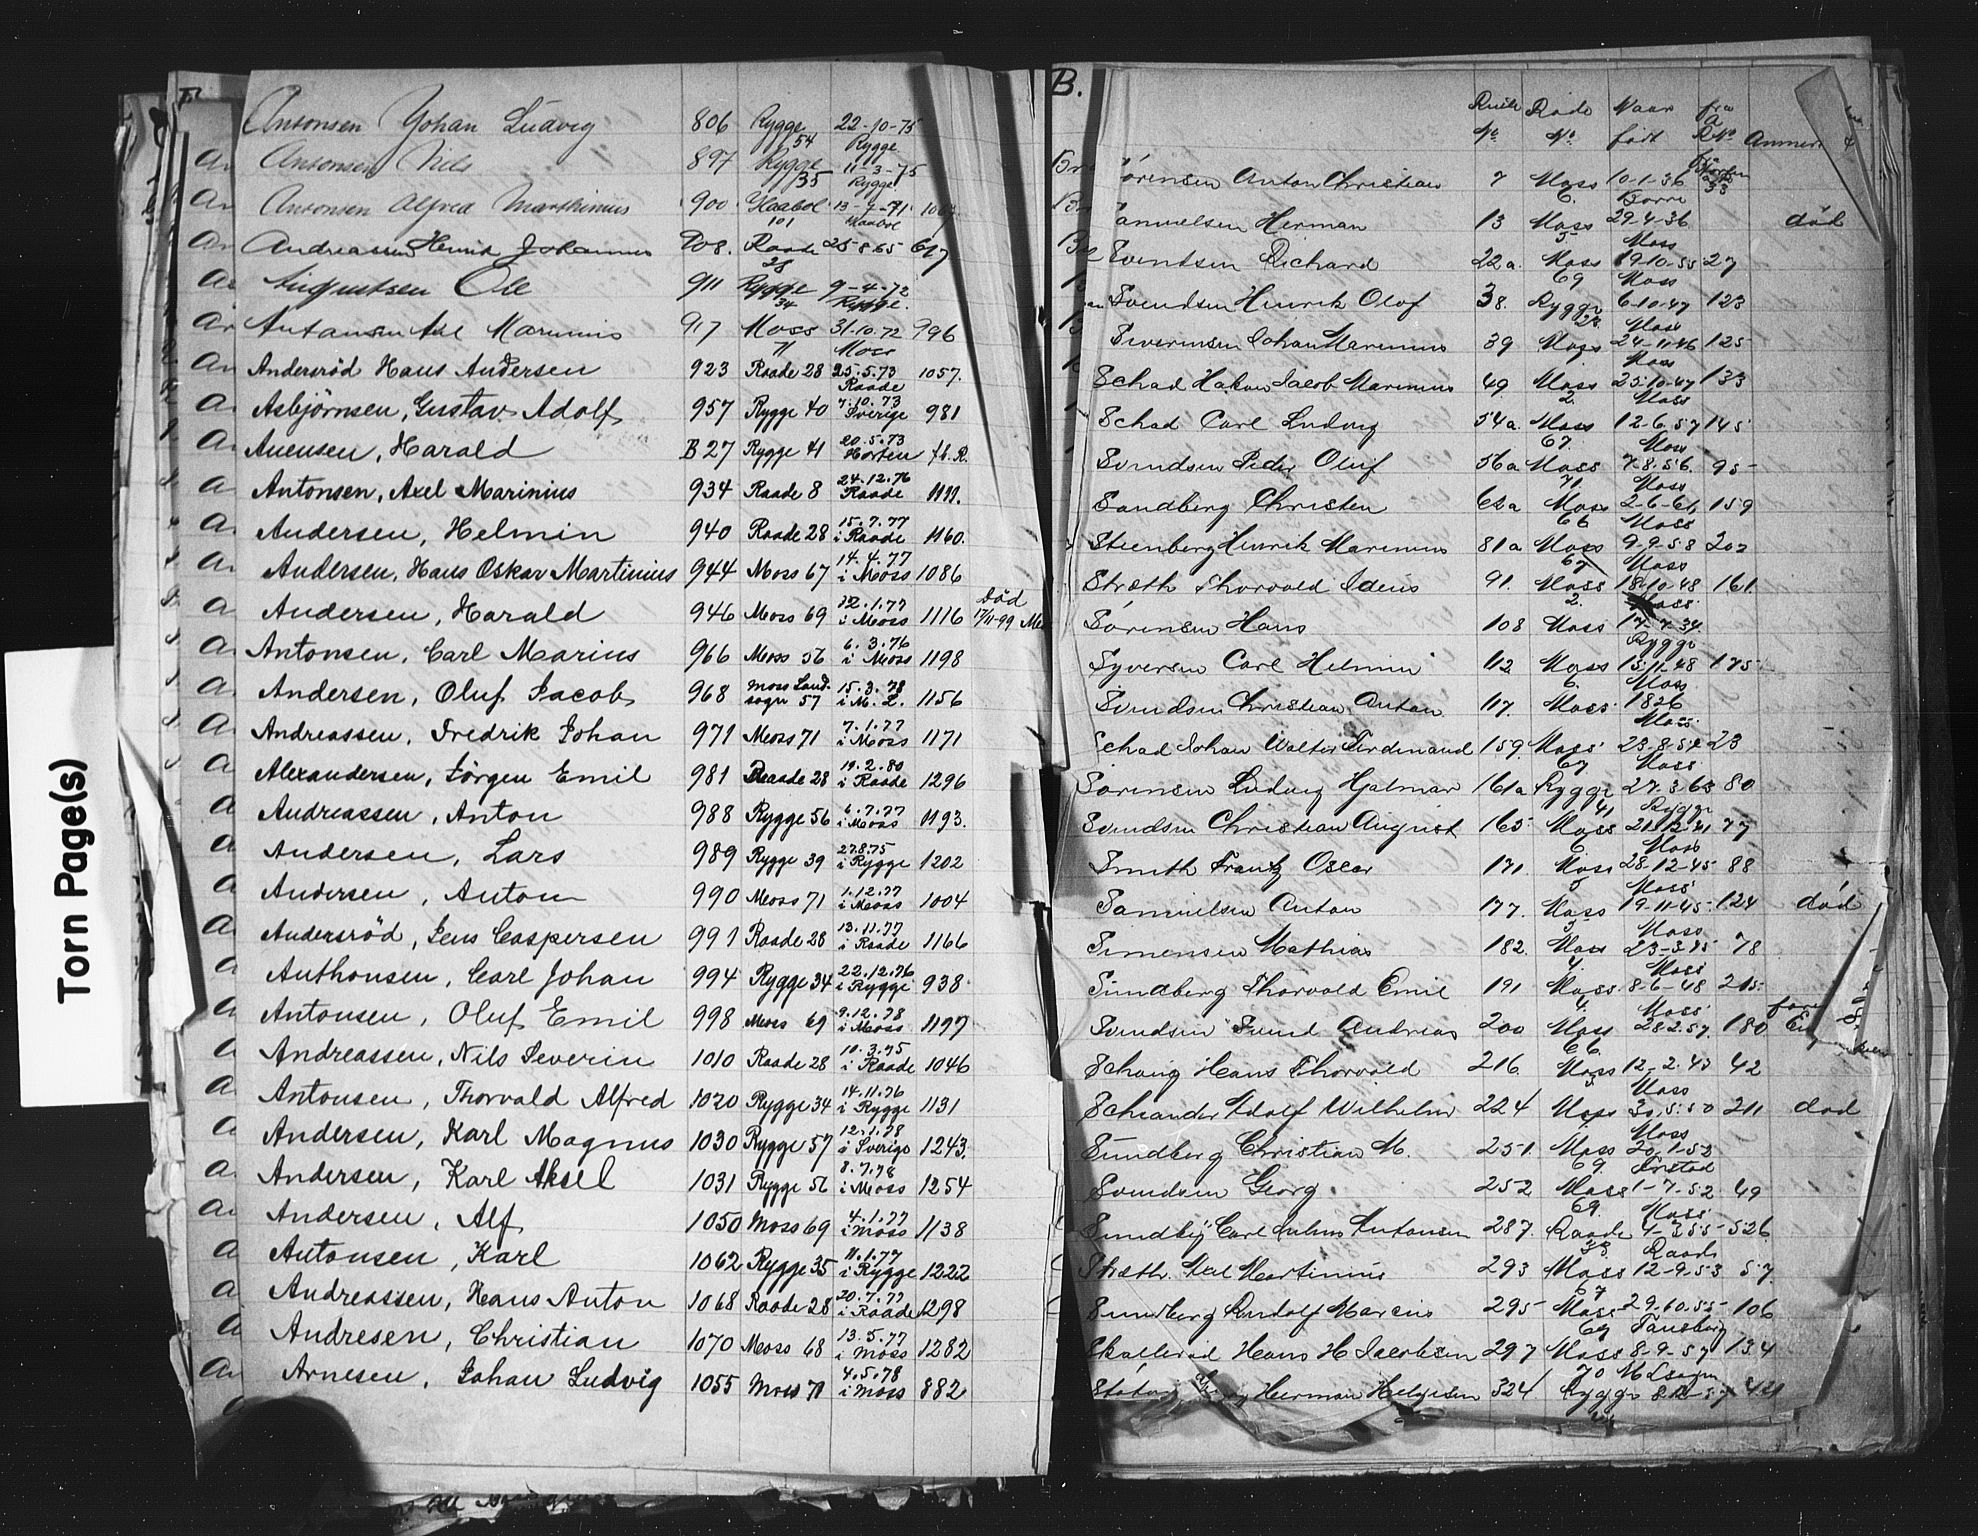 Torn Page(s)
Antonsen Johan Ludvig 806 Rygge 54 22-10-75 Rygge
Antonsen Nils 897 Rygge 35 11-3-75 Rygge
Antonsen Alfred Marthinius 900 Haabøl 101 13-7-71 Haabøl
Andreassen Henrik Johannes 908. Raade 28 25-8-65 617
Augustsen Ole 911 Rygge 34 9-4-72 Rygge.
Antonsen Axel Marinius 917 Moss 71 31.10.72 Moss 996
Andersrød Hans Andersen 923 Raade 28 25.5.73 Raade 1057.
Asbjørnsen, Gustav Adolf 957 Rygge 40 7.10.73 Sverige 981
Auensen, Harald B 27 Rygge 41 20.5.73 Horten fb. R.
Antonsen, Axel Marinius 934 Raade 8 24.12.76 Raade 1111.
Andersen, Helmin 940 Raade 28 15.7.77 i Raade 1160.
Andersen, Hans Oskar Martinius 944 Moss 67 14.4.77 i Moss 1086
Andersen, Harald 946 Moss 69 12.1.77 i Moss 1116 død 17/11-99
Antonsen, Carl Marius 966 Moss 56 6.3.76 i Moss 1198
Andersen, Oluf Jacob 968 Moss Landsogn 57 15.3.78 i M. L. 1156
Andreassen, Fredrik Johan 971 Moss 71 7.1.77 i Moss 1171
Alexandersen, Jørgen Emil 981 Raade 28 19.2.80 i Raade 1296
Andreassen, Anton 988 Rygge 56 6.7.77 i Moss 1193.
Andersen, Lars 989 Rygge 39 27.8.75 i Rygge 1202
Andersen, Anton 990 Moss 71 1.12.77 i Moss 1004
Andersrød, Jens Caspersen 991 Raade 28 13.11.77 i Raade 1166
Anthonsen, Carl Johan 994 Rygge 34 22.12.76 i Rygge 938
Antonsen, Oluf Emil 998 Moss 69 9.12.78 i Moss 1197
Andreassen, Nils Severin 1010 Raade 28 10.3.75 i Raade 1046
Antonsen, Thorvald Alfred 1020 Rygge 34 14.11.76 i Rygge 1131
Andersen, Karl Magnus 1030 Rygge 57 12.1.78 i Sverige 1243.
Andersen, Karl Aksel 1031 Rygge 56 8.7.78 i Moss 1254
Andersen, Alf 1050 Moss 69 4.1.77 i Moss 1138
Antonsen, Karl 1062 Rygge 35 11.1.77 i Rygge 1222
Andreassen, Hans Anton 1068 Raade 28 20.7.77 i Raade 1298
Andresen, Christian 1070 Moss 68 13.5.77 i Moss 1282
Arnesen, Johan Ludvig 1055 Moss 71 4.5.78 i Moss 882
B.
Rulle No. Rode No. Naar født fra
Sørensen Anton Christian 7 Moss 6. 10-1-36 Borre
Samuelsen Herman 13 Moss 5 29-4-36 Moss død
Svendsen Richard 22a. Moss 69 19-10-55 Moss 27
Svendsen Henrik Olof 38. Rygge 6-10-47 Moss 123
Siverinsen Johan Marinius 39 Moss 24-11-46 Moss 125
Schad Hakon Jacob Marinius 49 Moss 2. 25-10-47 Moss 133
Schad Carl Ludvig 54a. Moss 67. 12-6-57 Moss 145
Svendsen Peder Oluf 56a Moss 71. 7.8.56. Moss 95
Sandberg Christen 62a Moss 66 2-6-61 Moss 159
Steenberg Henrik Marinius 81a Moss 67 9-9-58 Moss 202
Stræth Thorvald Idens 91. Moss 2. 18-10-48 Moss 161.
Sørensen Hans 108 Moss 17-7-34. Rygge
Syversen Carl Helmin 112 Moss 6. 15-11-48 Moss 175
Svendsen Christian Anton 117. Moss 1826 Moss
Schad Johan Walter Ferdinand 159. Moss 67 23-8-54 Moss 23
Sørensen Ludvig Hjalmar 161a Rygge 41 27-3-63 Rygge 80
Svendsen Christian August 165. Moss 6 21-12-41 Moss 77
Smith Frantz Oscar 171. Moss 5 28-12-45 Moss 88
Samuelsen Anton 177. Moss 3 19-11-45 Moss 124 død
Simensen Mathias 182. Moss 4. 23-3-45 Moss 78
Sundberg Thorvald Emil 191 Moss 4. 8-6-48 Moss 215
Svendsen Svend Andreas 200 Moss 66. 28.2.57. 180
Schong Hans Thorvald 216 Moss 3 12-2-43 Moss 42
Schiander Adolf Wilhelm 224 Moss 30.5.50 Moss 211 død
Sundberg Christian M. 251. Moss 69. 20-1-52 Fristad
Svendsen Georg 252 Moss 69. 1-7-52 Moss 49
Sundby Carl Julius Antonsen 287. Raade 4-3-55 Raade 526
Stræth Axel Martinius 293 Moss 67 12-9-53 57.
Sundberg Rudolf Marcus 295 Moss 67 29.10.55 Tønsberg 106
Skallerød Hans H. Jacobsen 297 Moss 70 8-9-57 M Lsogn 134
Herman Helgesen 324 Rygge